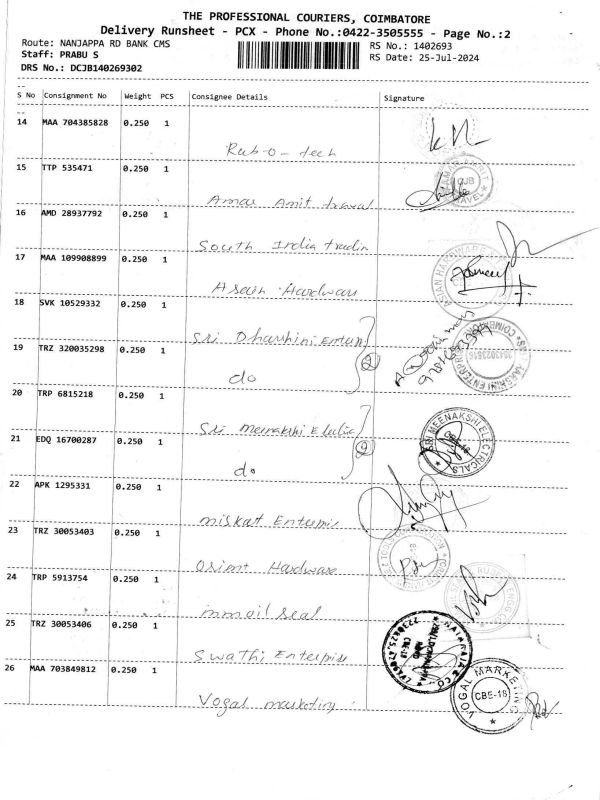 THE PROFESSIONAL COURIERS, COIMBATORE
Delivery Runsheet - PCX - Phone No.:0422-3505555 - Page No.:2
Route: NANJAPPA RD BANK CMS
RS No.: 1402693
Staff: PRABU S
RS Date: 25-Jul-2024
DRS No.: DCJB140269302
S No Consignment No Weight PCS Consignee Details Signature
14 MAA 704385828 0.250 1
Rub-o-tech
15 TTP 535471 0.250 1
Amar Amit travel
16 AMD 28937792 0.250 1
South India tradin
17 MAA 109908899 0.250 1
Asain Hardware
18 SVK 10529332 0.250 1
Sri Dharshini Enterp
19 TRZ 320035298 0.250 1
do
2
20 TRP 6815218 0.250 1
Sri Meenakshi Electric
21 EDQ 16700287 0.250 1
do
2
SRI MEENAKSHI ELECTRICALS
CBE-18
22 APK 1295331 0.250 1
miskat Enterpris
23 TRZ 30053403 0.250 1
Orient Hardware
24 TRP 5913754 0.250 1
mm oil seal
25 TRZ 30053406 0.250 1
Swathi Enterpise
26 MAA 703849812 0.250 1
Vogal marketing
VOGAL MARKETING
CBE-18